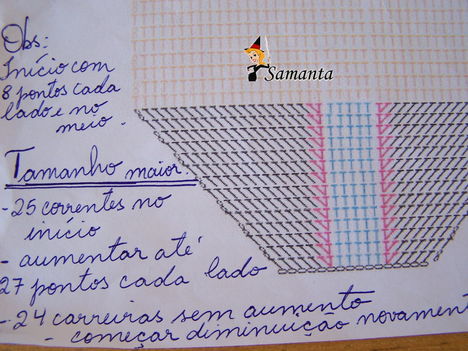 Obs:
Início com
8 pontos cada
lado e no
meio.
Samanta
Tamanho maior.
- 25 correntes no
início
- aumentar até
27 pontos cada lado
- 24 carreiras sem aumento
- começar diminuição novament